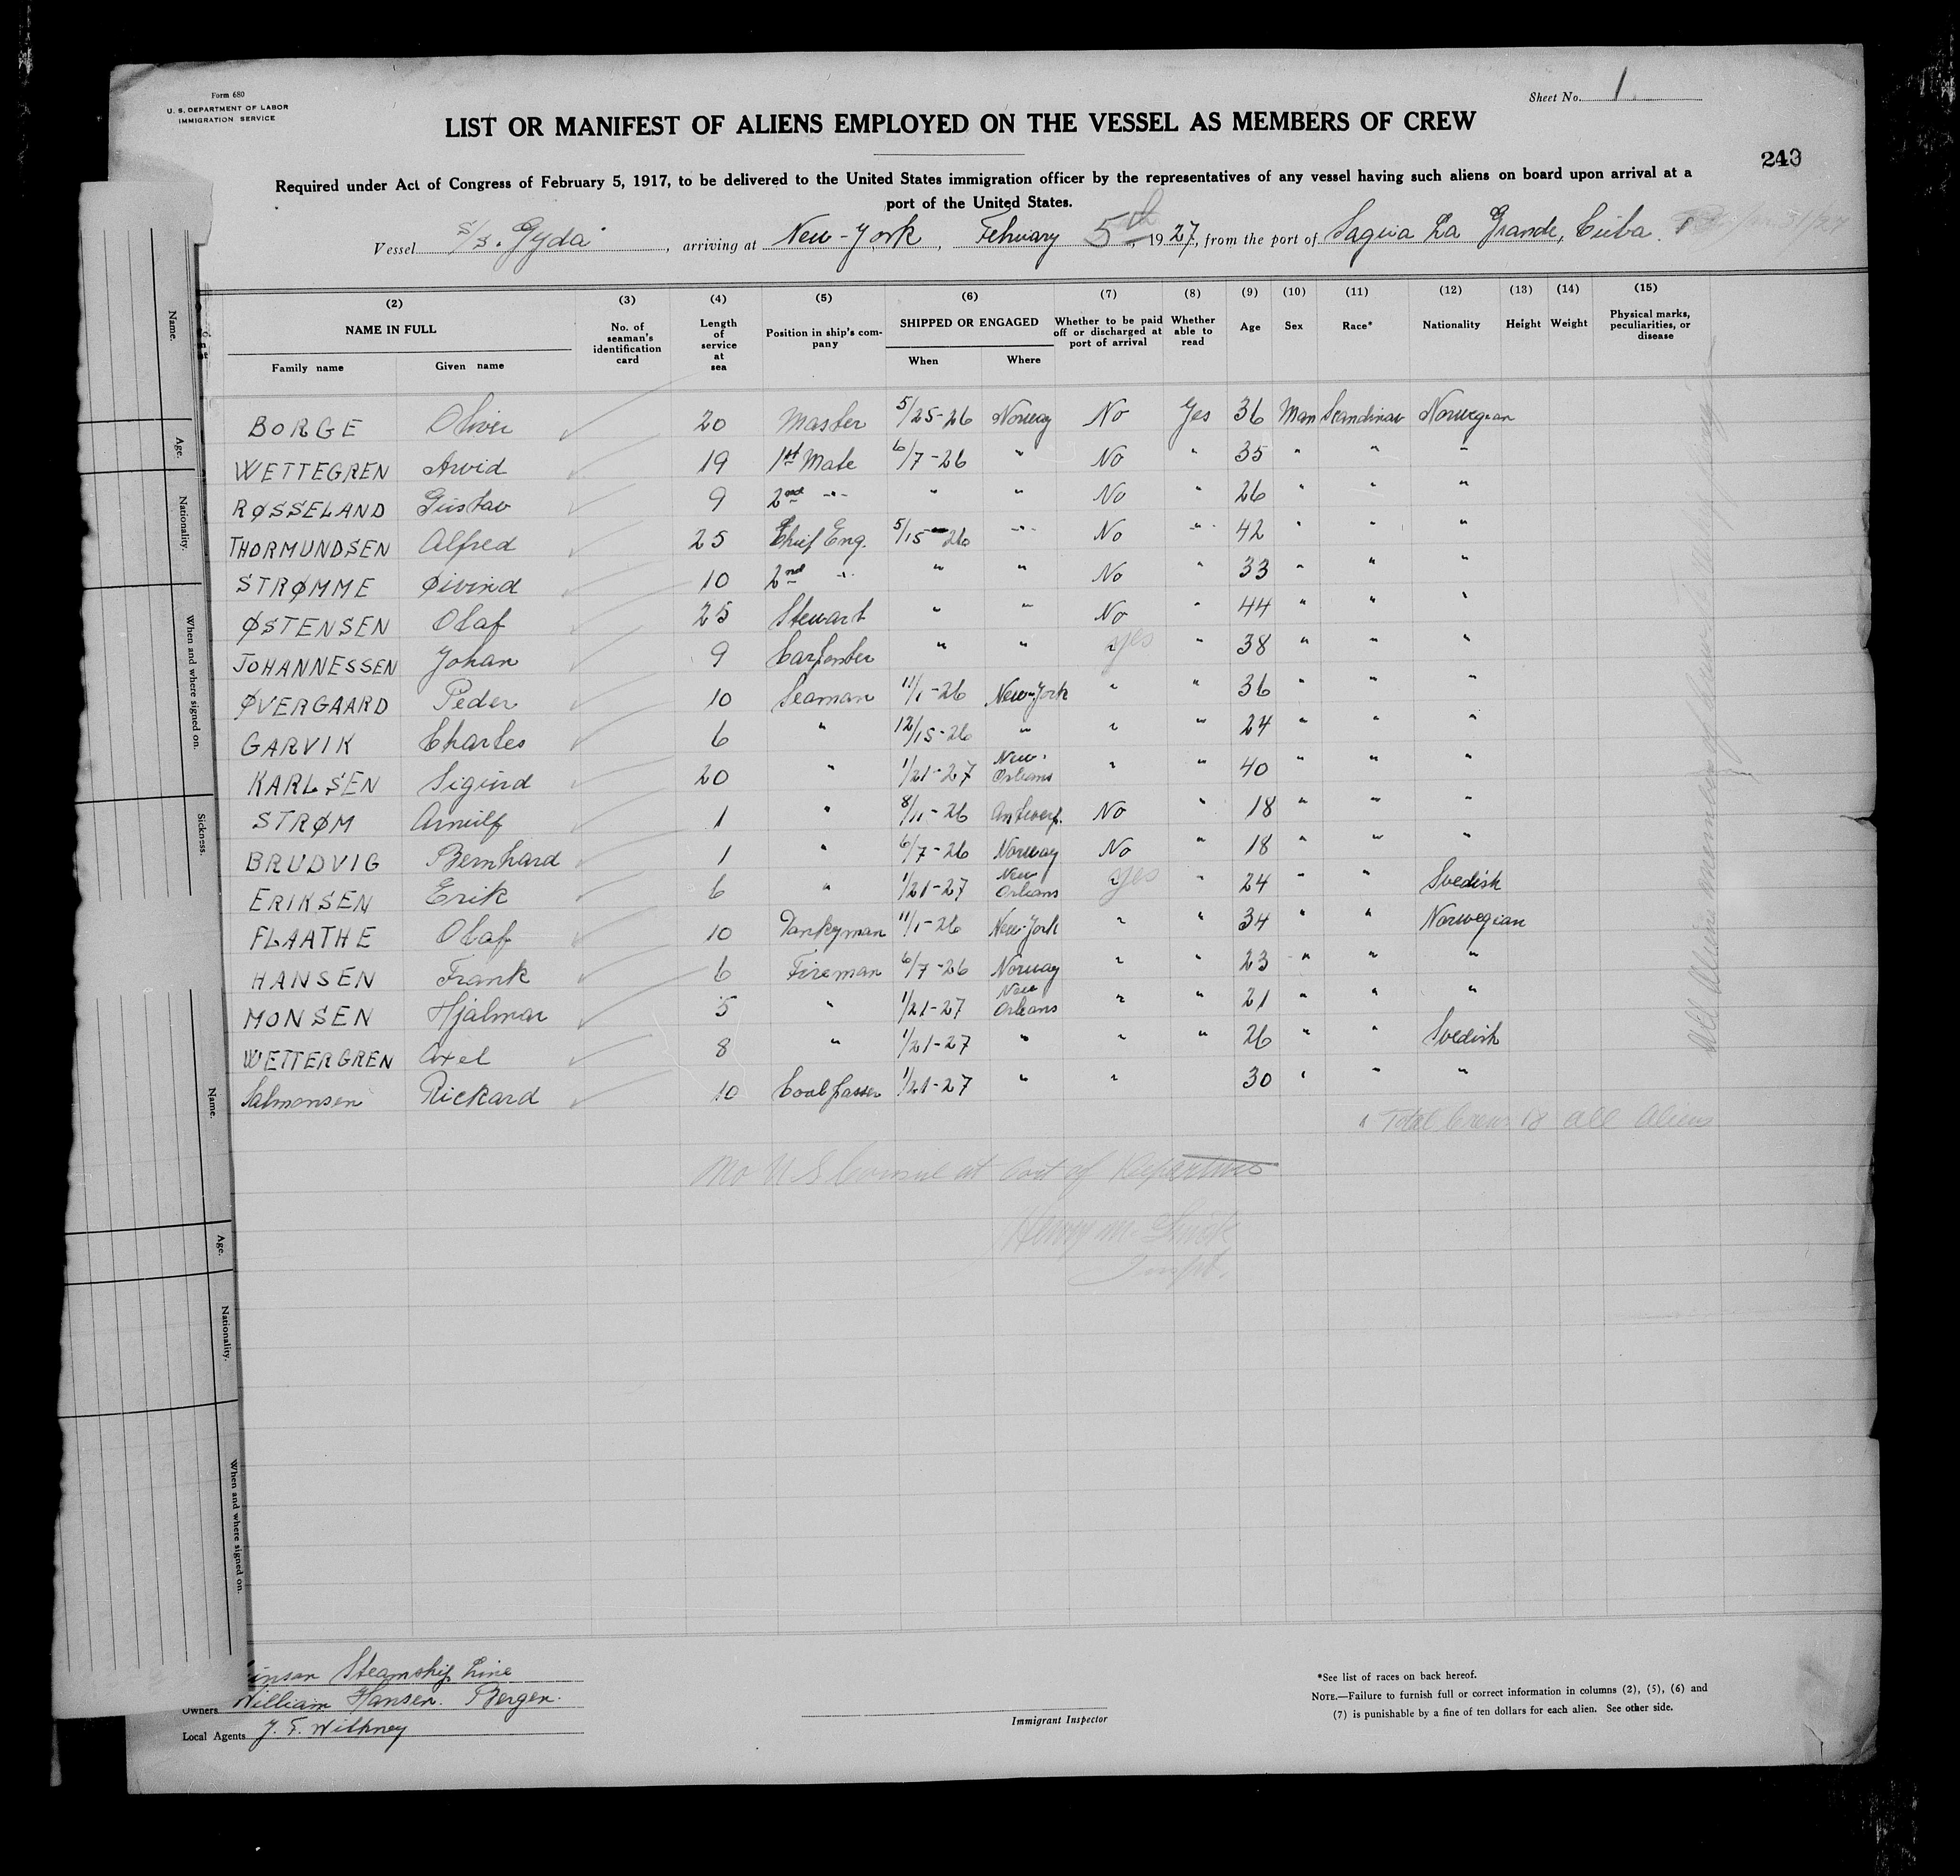 Form 680
U. S. DEPARTMENT OF LABOR
IMMIGRATION SERVICE
Sheet No. 1
LIST OR MANIFEST OF ALIENS EMPLOYED ON THE VESSEL AS MEMBERS OF CREW
240
Required under Act of Congress of February 5, 1917, to be delivered to the United States immigration officer by the representatives of any vessel having such aliens on board upon arrival at a
port of the United States.
Vessel S/S. Gyda, arriving at New-York, Februay 5th, 1927, from the port of Sagua La Grande, Cuba.
(2) (3) (4) (5) (6) (7) (8) (9) (10) (11) (12) (13) (14) (15)
NAME IN FULL
Family name Given name
No. of seaman's identification card
Length of service at sea
Position in ship's company
SHIPPED OR ENGAGED
When Where
Whether to be paid off or discharged at port of arrival
Whether able to read
Age
Sex
Race*
Nationality
Height
Weight
Physical marks, peculiarities, or disease
BORGE Oliver 20 Master 5/25-26 Norway No Yes 36 Man Scandinav Norwegian
WETTEGREN Arvid 19 1st Mate 6/7-26 " No " 35 " " "
RØSSELAND Gustav 9 2nd -"- " " No " 26 " " "
THORMUNDSEN Alfred 25 Chief Eng. 5/15-26 -"- No " 42 " " "
STRØMME Øivind 10 2nd -"- " " No " 33 " " "
ØSTENSEN Olaf 25 Stewart " " No " 44 " " "
JOHANNESSEN Johan 9 Carpenter " " yes " 38 " " "
ØVERGAARD Peder 10 Seaman 11/1-26 New-York " " 36 " " "
GARVIK Charles 6 " 12/15-26 " " " 24 " " "
KARLSEN Sigurd 20 " 1/21-27 New-Orleans " " 40 " " "
STRØM Arnulf 1 " 8/11-26 Antwerp. No " 18 " " "
BRUDVIG Bernhard 1 " 6/7-26 Norway No " 18 " " "
ERIKSEN Erik 6 " 1/21-27 New Orleans yes " 24 " " Svedish
FLAATHE Olaf 10 Donkyman 11/1-26 New-York " " 34 " " Norwegian
HANSEN Frank 6 Fireman 6/7-26 Norway " " 23 " " "
MONSEN Hjalmar 5 " 1/21-27 New Orleans " " 21 " " "
WETTERGREN Axel 8 " 1/21-27 " " " 26 " " Svedish
Salmonsen Rickard 10 Coal passer 1/21-27 " " 30 " " "
Total Crew 18 all Aliens
No U S Consul at Port of Departure
Henry M.
Inspt.
All Alien members of Crew
Name.
Age.
Nationality.
When and where signed on.
Sickness.
Name.
Age.
Nationality.
When and where signed on.
Steamship Line
Owners William Hansen. Bergen.
Local Agents J. F. Withney
Immigrant Inspector
*See list of races on back hereof.
NOTE.—Failure to furnish full or correct information in columns (2), (5), (6) and
(7) is punishable by a fine of ten dollars for each alien. See other side.